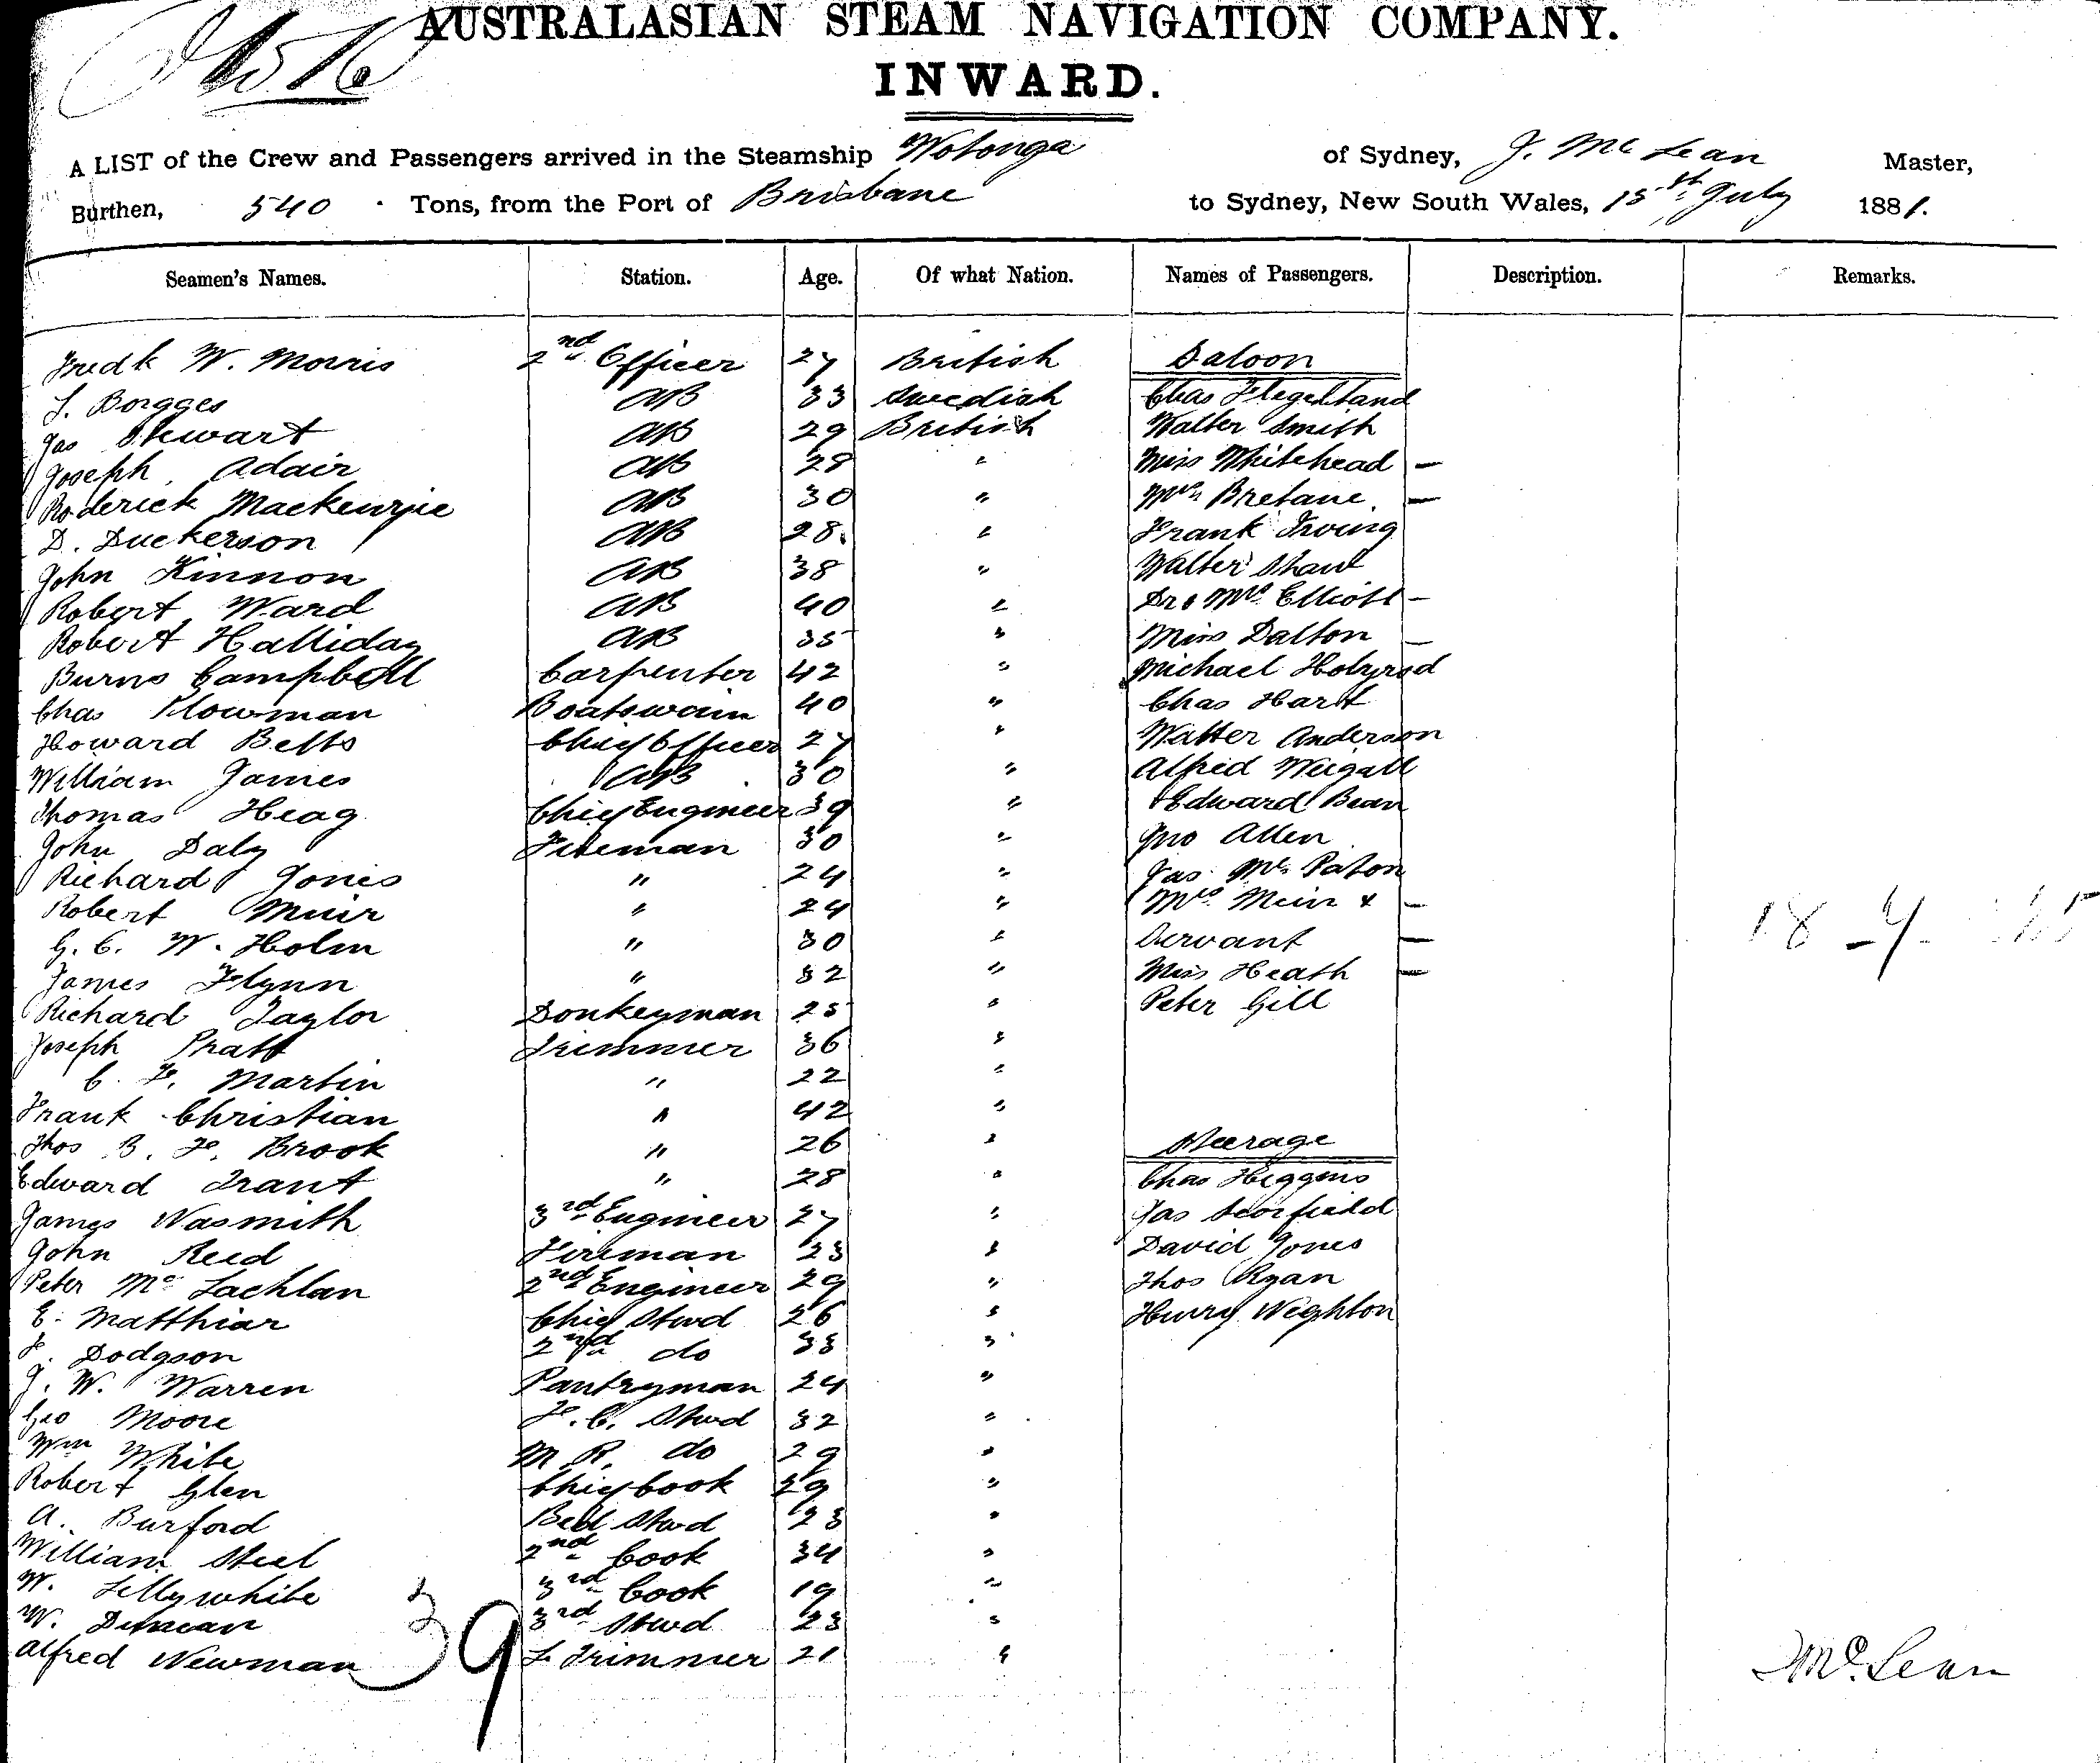 AUSTRALASIAN STEAM NAVIGATION COMPANY.
INWARD.
A LIST of the Crew and Passengers arrived in the Steamship Wotonga of Sydney, J. Mc Lean Master,
Burthen, 540 Tons, from the Port of Brisbane to Sydney, New South Wales, 15th July 1881.
Seamen's Names. Station. Age. Of what Nation. Names of Passengers. Description. Remarks.
Fredk W. Morris 2nd Officer 27 British Saloon
J. Borgges AB 33 Swedish Chas
Jas Stewart AB 29 British Walter Smith
Joseph Adair AB 28 " Miss Whitehead —
Roderick Mackenzie AB 30 " Mrs Bretane —
D. Duckerson AB 28 " Frank Irving
John Kinnon AB 38 " Walter Shaw
Robert Ward AB 40 " Dr & Mrs Elliott —
Robert Halliday AB 35 " Miss Dalton —
Burns Campbell Carpenter 42 " Michael
Chas Plowman Boatswain 40 " Chas Hart
Howard Betts Chief Officer 27 " Walter Anderson
William James AB 30 " Alfred Weigall
Thomas Heag Chief Engineer 39 " Edward Bean
John Daly Fireman 30 " Jno Allen
Richard Jones " 24 " Jas Mc Paton
Robert Muir " 24 " Mrs Muir & —
G. C. W. Holm " 30 " Servant —
James Flynn " 32 " Miss Heath —
Richard Taylor Donkeyman 25 " Peter Gill
Joseph Pratt Trimmer 36 "
C. F. Martin " 22 "
Frank Christian " 42 "
Thos B. F. Brook " 26 " Steerage
Edward Grant " 28 " Chas Higgins
James Nasmith 3rd Engineer 27 " Jas Scorfield
John Reed Fireman 23 " David Jones
Peter Mc Lachlan 2nd Engineer 29 " Thos Ryan
E. Matthiar Chief Stwd 26 " Harry Wighton
F. Dodgson 2nd do 33 "
J. W. Warren Pantryman 24 "
Geo Moore F. C. Stwd 32 "
Wm White M. R. do 29 "
Robert Glen Chief Cook 29 "
A. Burford Bed Stwd 23 "
William Steel 2nd Cook 34 "
W. Lillywhite 3rd Cook 19 "
W. Duncan 3rd Stwd 23 "
Alfred Newman 39 Trimmer 21 " J Mc Lean